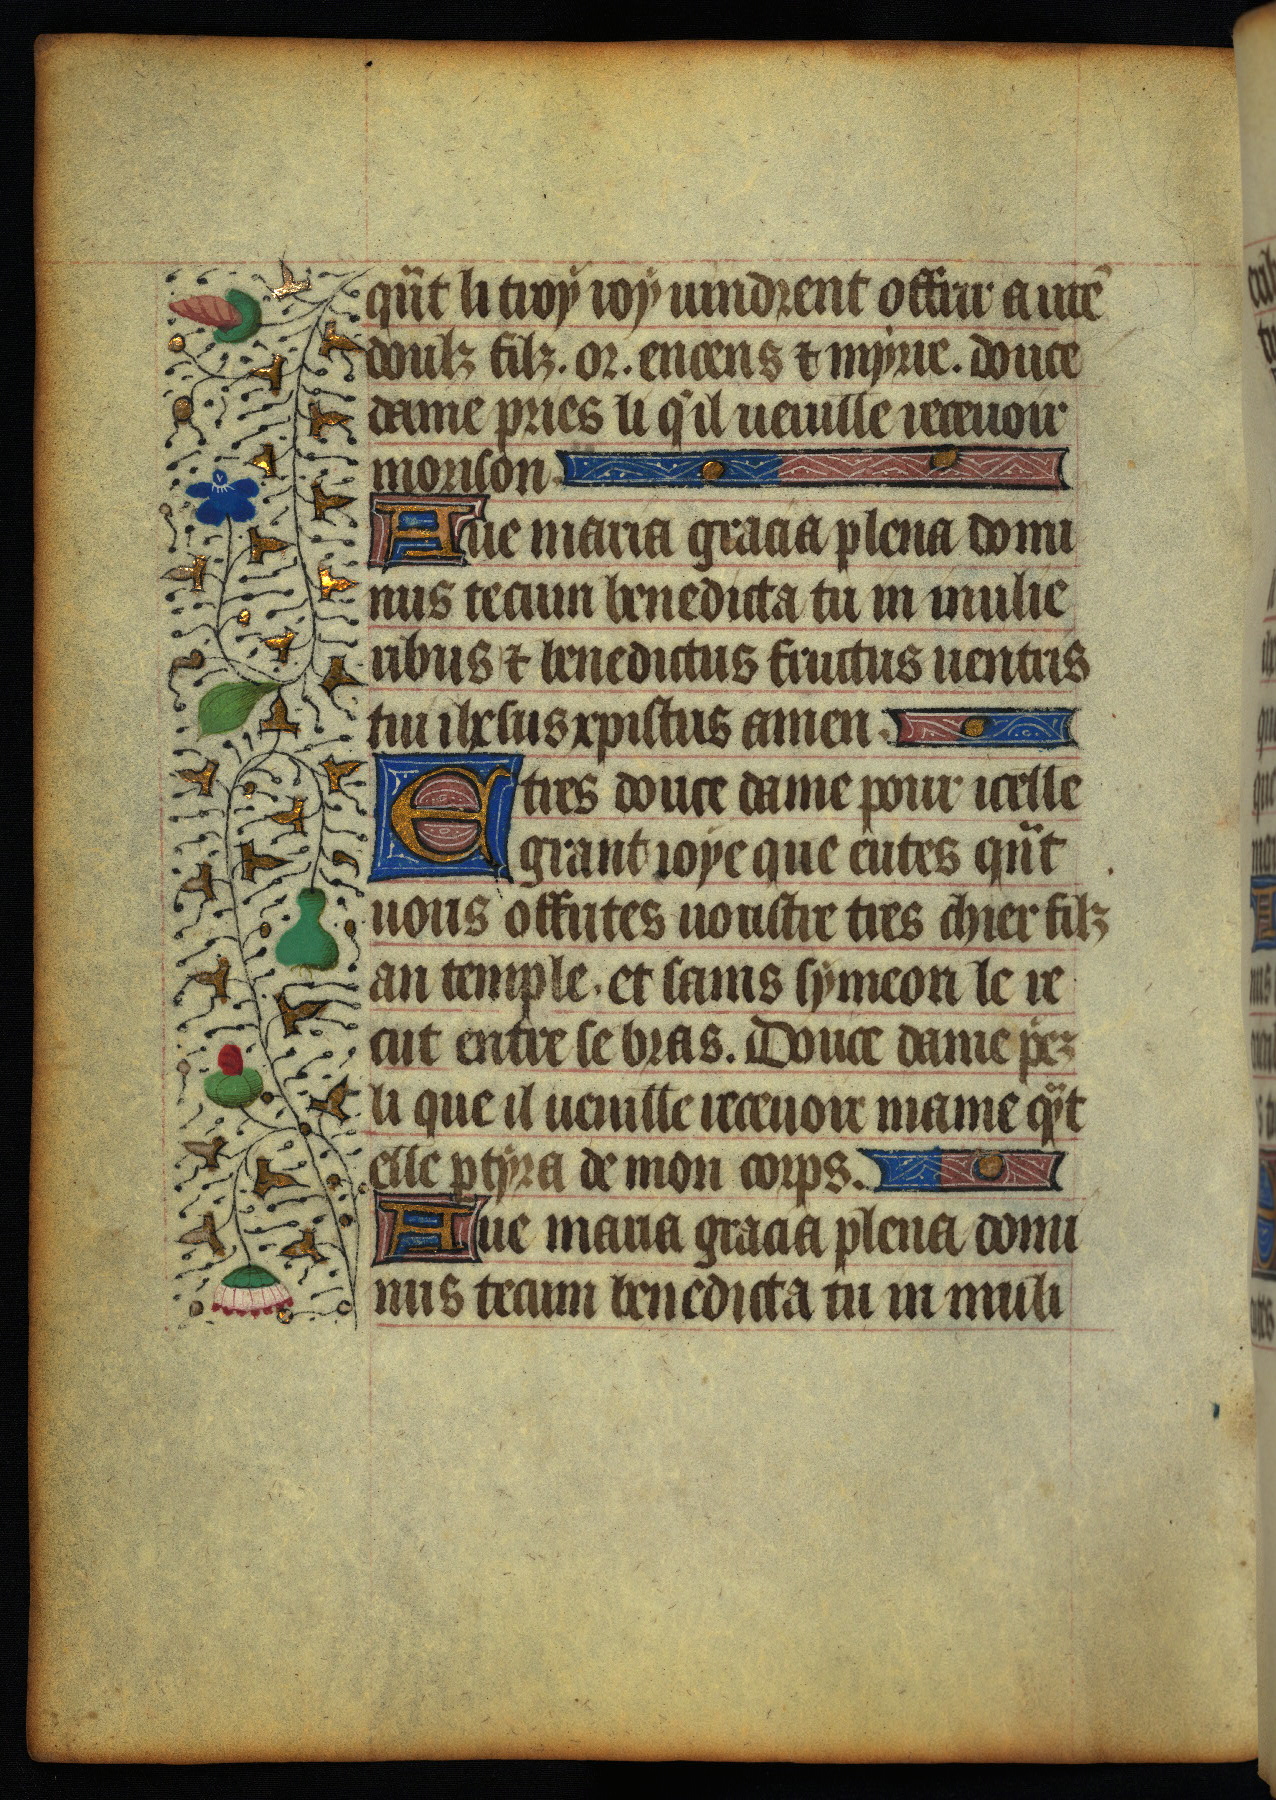 qũt li troy roy uindrent offrir a urẽ
doulz filz. or. encens ⁊ myrre. douce
dame pries li q'il ueuille receuoir
morison
Aue maria gracia plena domi
nus tecum benedicta tu in mulie
ribus ⁊ benedictus fructus uentris
tui ihesus xpistus amen
E tres douce dame pour icelle
grant ioye que eutes qũt
uous offrites uoustre tres chier filz
au temple. et sains symeon le re
cut entre se bras. Douce dame p̃ez
li que il ueuille receuoir mame qũt
elle ptyra de mon corps.
Aue maria gracia plena domi
nus tecum benedicta tu in muli